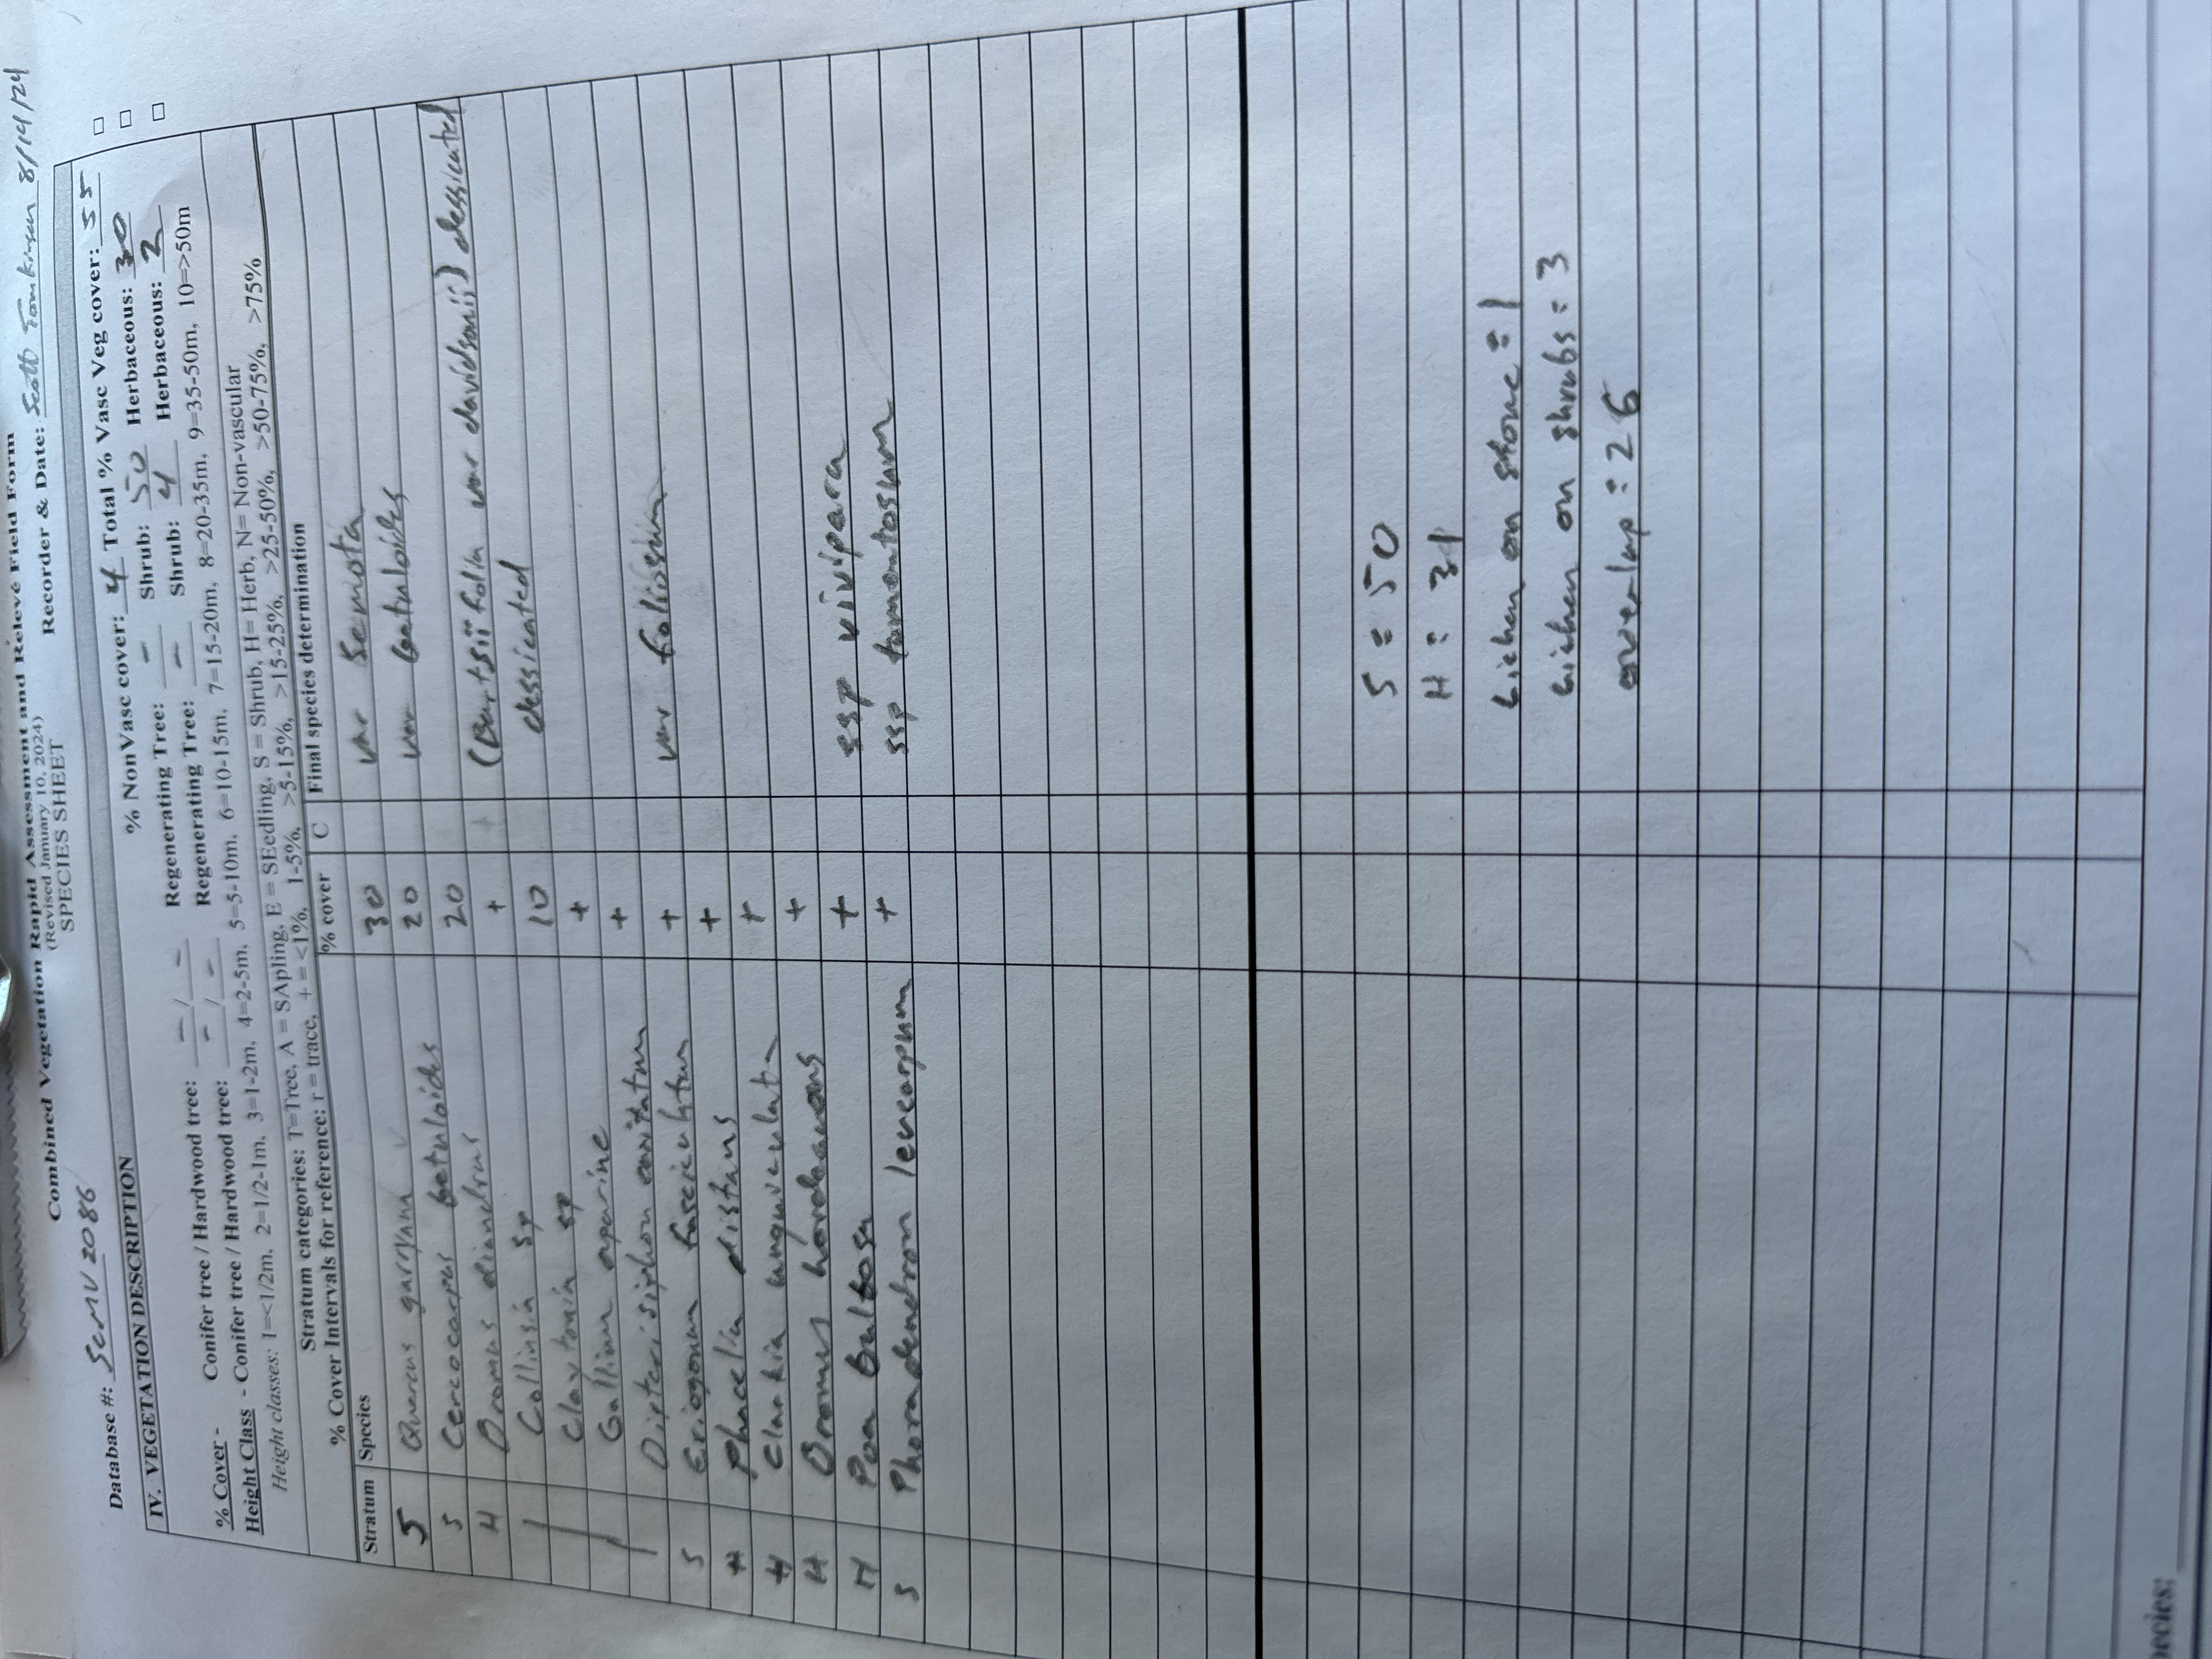 Combined Vegetation Rapid Assessment and Relevé Field Form
(Revised January 10, 2024)
SPECIES SHEET
Recorder & Date: Scott 8/14/24
Database #: SCMV2086
IV. VEGETATION DESCRIPTION
% NonVasc cover: 4 Total % Vasc Veg cover: 55
% Cover - Conifer tree / Hardwood tree: — / — Regenerating Tree: — Shrub: 50 Herbaceous: 30
Height Class - Conifer tree / Hardwood tree: — / — Regenerating Tree: — Shrub: 4 Herbaceous: 2
Height classes: 1=<1/2m, 2=1/2-1m, 3=1-2m, 4=2-5m, 5=5-10m, 6=10-15m, 7=15-20m, 8=20-35m, 9=35-50m, 10=>50m
Stratum categories: T=Tree, A = SApling, E = SEedling, S = Shrub, H= Herb, N= Non-vascular
% Cover Intervals for reference: r = trace, + = <1%, 1-5%, >5-15%, >15-25%, >25-50%, >50-75%, >75%
Stratum Species % cover C Final species determination
S Quercus garryana 30 var semota
S Cercocarpus betuloides 20 var betuloides
H Bromus diandrus 20
Collinsia sp + (bartsiifolia var davidsonii) dessicated
Claytonia sp 10 dessicated
Gallium aparine +
Dipterisiphon capitatum +
S Eriogonum fasciculatum + var foliosum
H Phacelia distans +
H Clarkia unguiculata +
H Bromus hordeaceous +
H Poa bulbosa + ssp vivipara
S Phoradendron leucarpum + ssp tomentosum
S = 50
H = 31
Lichen on stone = 1
Lichen on shrubs = 3
overlap = 26
pecies: